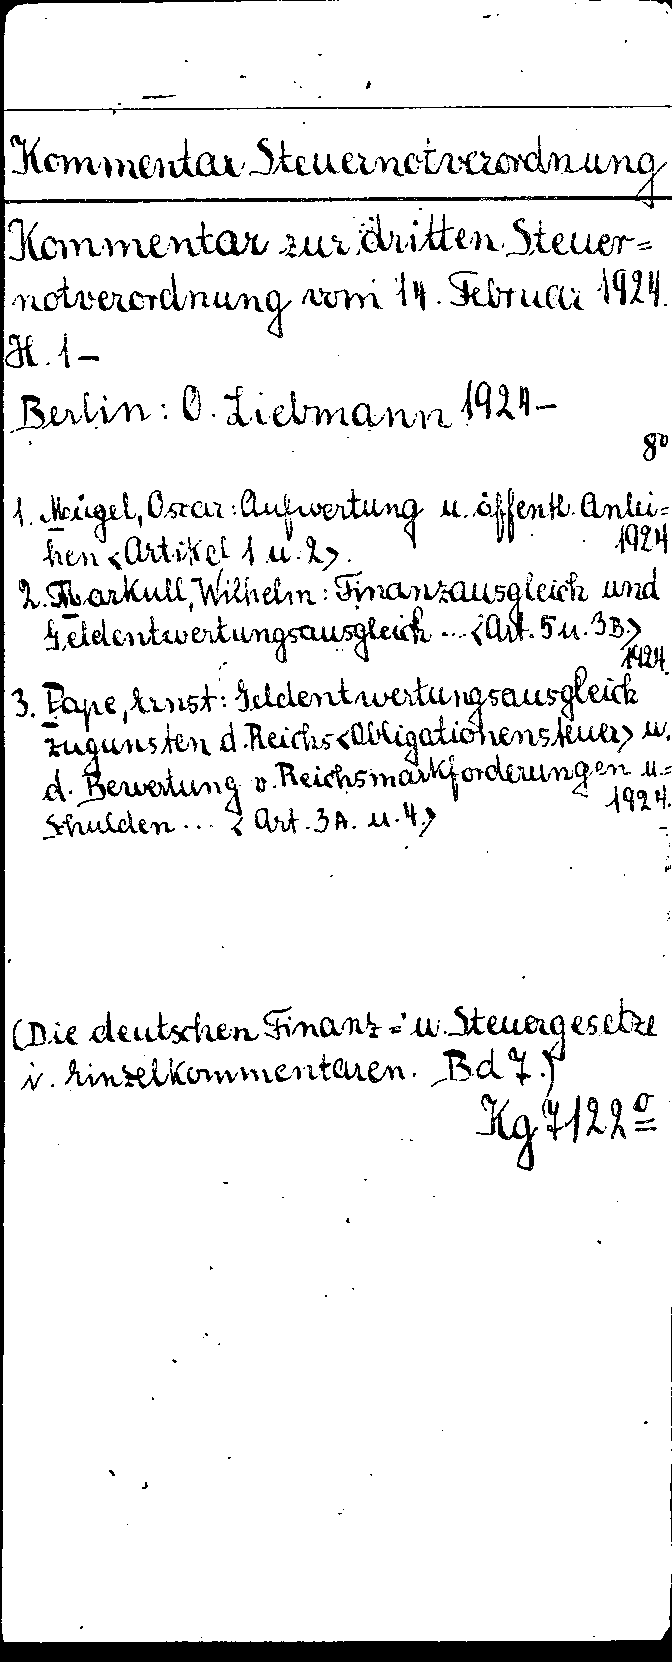 Kommentar Steuernotverordnung
Kommentar zur dritten Steuer=
notverordnung vom 14. Februar 1924.
H. 1–
Berlin: O. Liebmann 1924–
8°
1. Mügel, Oscar: Aufwertung u. öffentl. Anlei=
hen <Artikel 1 u. 2>. 1924
2. Markull, Wilhelm: Finanzausgleich und
Geldentwertungsausgleich ... <Art. 5 u. 3B.>
1924.
3. Pape, Ernst: Geldentwertungsausgleich
zugunsten d. Reichs <Obligationensteuer> u.
d. Bewertung v. Reichsmarkforderungen u.=
Schulden ... < Art. 3A. u. 4.> 1924.
(Die deutschen Finanz= u. Steuergesetze
i. Einzelkommentaren. Bd 7.)
Kg 7122 º